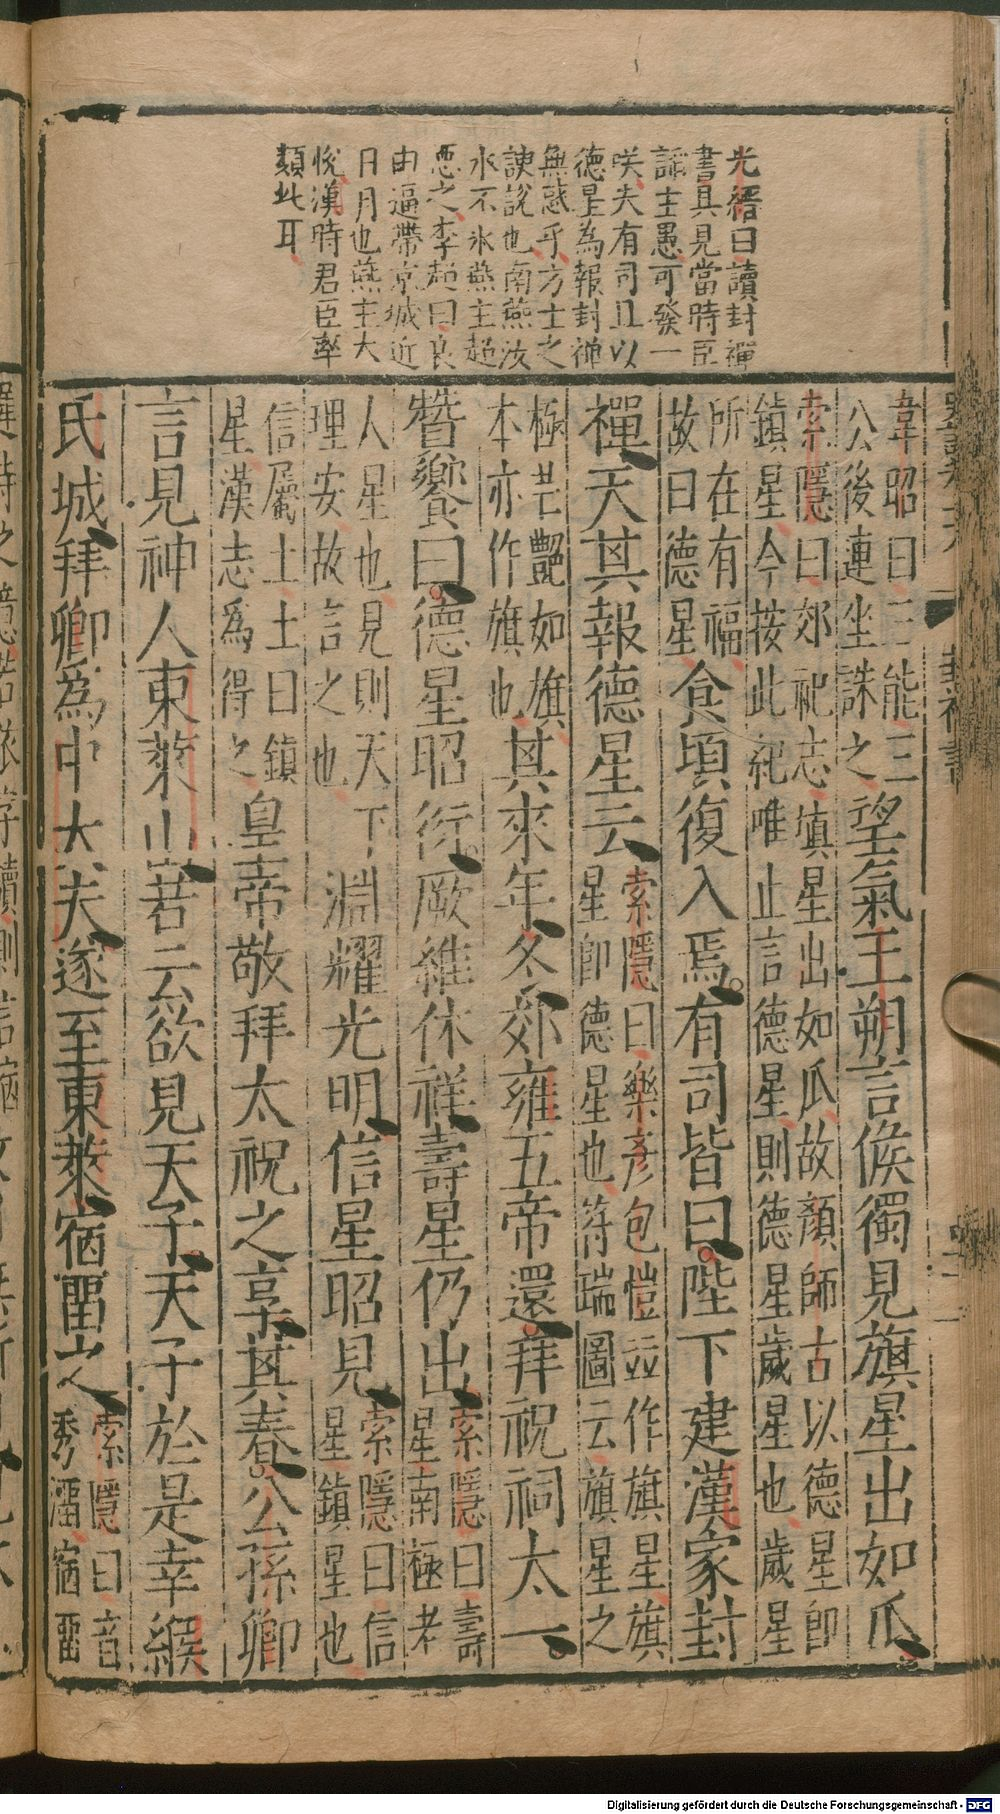 光縉曰讀封禪
書具見當時臣
諂主愚可發一
咲夫有司且以
德星為報封禅
無惑乎方士之
諛說也南燕汝
水不氷燕主超
惡之李超曰良
由逼帶京城近
日月也燕主大
悅漢時君臣率
類此耳
韋昭曰三能三
公後連坐誅之望氣王朔言候獨見旗星出如瓜
索隱曰郊祀志填星出如瓜故顏師古以德星即
鎮星今按此紀唯止言德星則德星歲星也歲星
所在有福
故曰德星食頃復入焉有司皆曰陛下建漢家封
禪天其報德星云索隱曰樂彥包愷並作旗星旗
星即德星也符瑞圖云旗星之
極芒豔如旗
本亦作旗也其來年冬郊雍五帝還拜祝祠太一
贊饗曰德星昭衍厥維休祥壽星仍出索隱曰壽
星南極老
人星也見則天下
理安故言之也淵耀光明信星昭見索隱曰信
星鎮星也
信屬土土曰鎮
星漢志為得之皇帝敬拜太祝之享其春公孫卿
言見神人東萊山若云欲見天子天子於是幸緱
氏城拜卿為中大夫遂至東萊宿畱之索隱曰音
秀溜宿畱
Digitalisierung gefördert durch die Deutsche Forschungsgemeinschaft - DFG